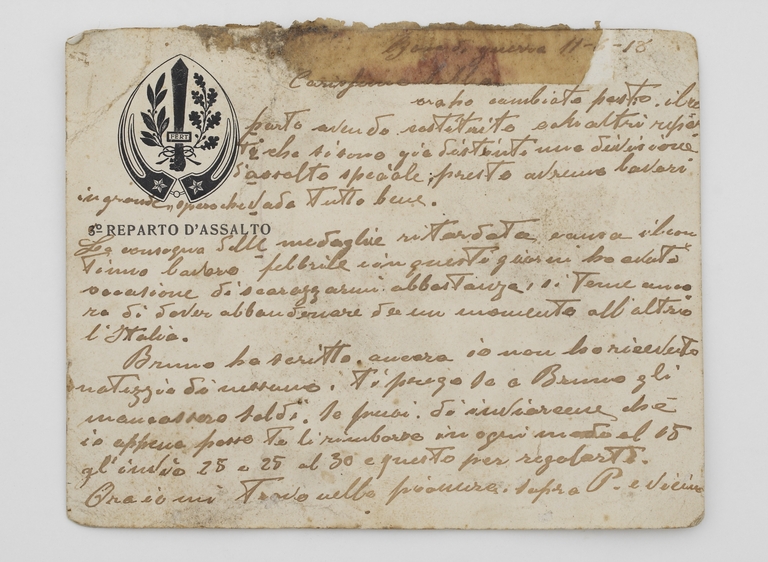 Zona di guerra 11-6-18
Carissimo
ora ho cambiato posto. il re
parto avendo costituito con altri repar
ti che si sono già distinti una divisione
d'assalto speciale, presto avremo lavori
in grande, spero che vada tutto bene.
FERT
6º REPARTO D'ASSALTO
La consegna delle medaglie ritardata causa il con
tinuo lavoro febbrile in questi giorni ho avuto
occasione di scarozzarmi abbastanza, si teme anco
ra di dover abbandonare da un momento all'altro
l'Italia.
Bruno ha scritto. ancora io non ho ricevuto
notizzie di nessuno. ti prego se a Bruno gli
mancassero soldi, se puoi. di inviarcene che
io appena posso te li rimborso in ogni modo al 15
gl'invio 25 e 25 al 30 e questo per regolarti.
Ora io mi trovo nella pianura sopra P. e vicin